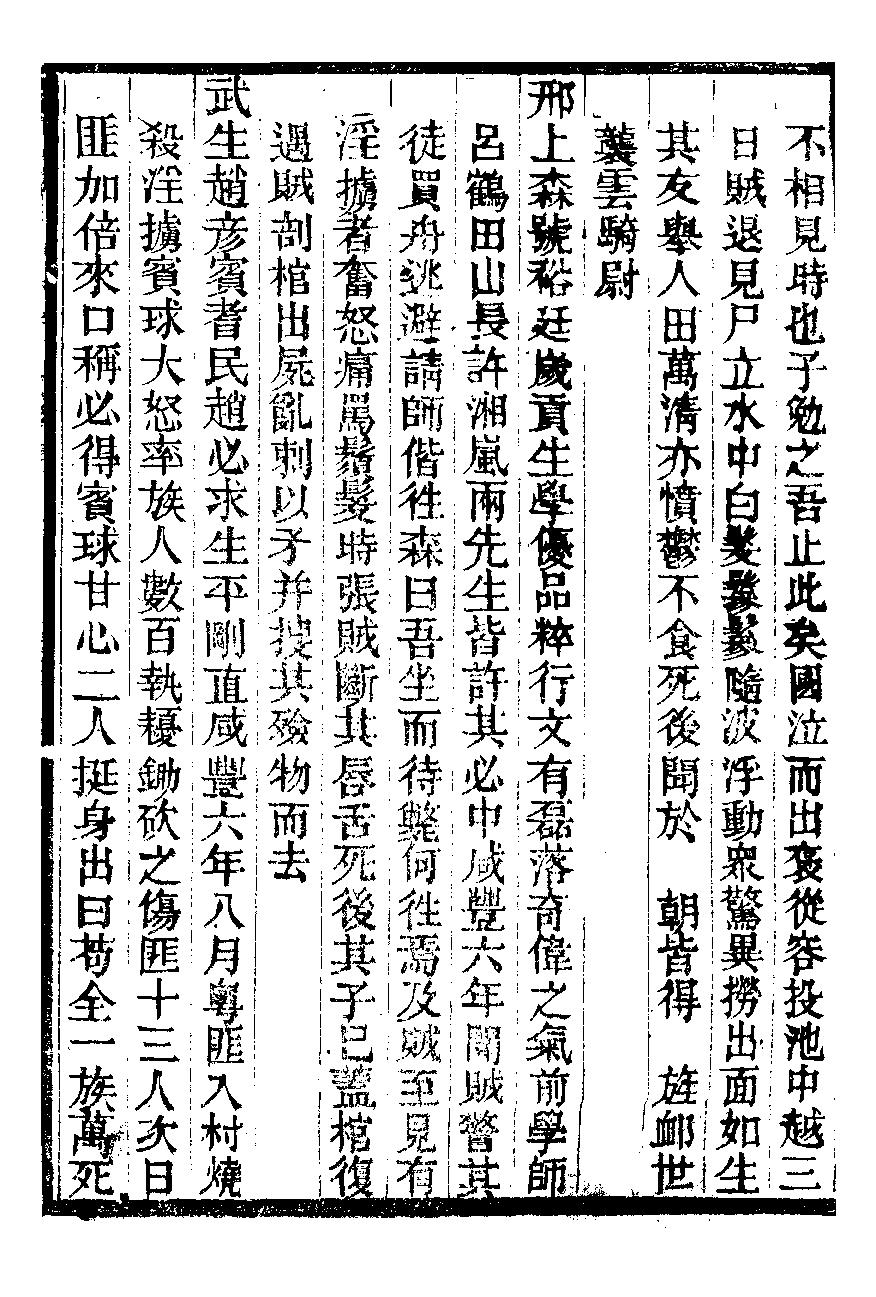 不相見時也子勉之吾止此矣國泣而出褒從容投池中越三
日賊退見尸立水中白髮鬖鬖隨波浮動衆驚異撈出面如生
其友舉人田萬清亦憤鬱不食死後聞於　朝皆得　旌卹世
襲雲騎尉
邢上森號裕廷歲貢生學優品粹行文有磊落奇偉之氣前學師
呂鶴田山長許湘嵐兩先生皆許其必中咸豐六年聞賊警其
徒買舟逃避請師偕往森曰吾坐而待斃何往焉及賊至見有
淫擄者奮怒痛罵鬚髮時張賊斷其唇舌死後其子已蓋棺復
遇賊剖棺出屍亂刺以矛并搜其殮物而去
武生趙彥賓耆民趙必求生平剛直咸豐六年八月粵匪入村燒
殺淫擄賓球大怒率族人數百執耰鋤砍之傷匪十三人次日
匪加倍來口稱必得賓球甘心二人挺身出曰苟全一族萬死